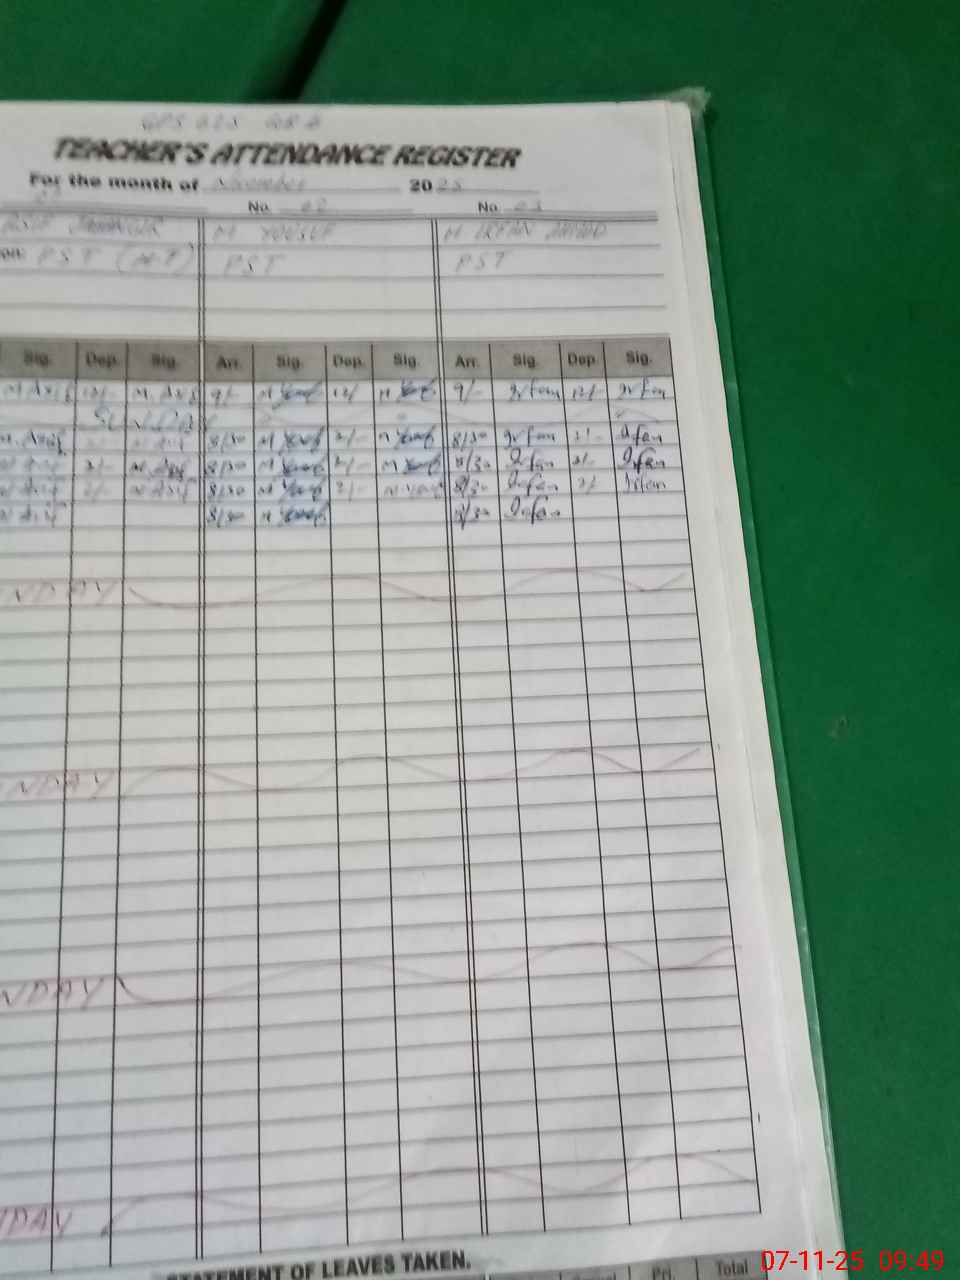 TEACHER'S ATTENDANCE REGISTER
For the month of November 2025
No. 02 No. 03
M YOUSUF M IRFAN AHMAD
PST (H.T) PST PST
Sig. Dep. Sig. Arr. Sig. Dep. Sig. Arr. Sig. Dep. Sig.
M. Asif 12/- M. Asif 9/- M Yousuf 12/ M Yousuf 9/- Irfan 12/- Irfan
SUNDAY
M. Asif 8/30 M Yousuf 2/- M Yousuf 8/30 Irfan 2/- Irfan
M Asif 2/- M Asif 8/30 M Yousuf 2/- M Yousuf 8/30 Irfan 2/- Irfan
M Asif 2/- M Asif 8/30 M Yousuf 2/- M Yousuf 8/30 Irfan 2/ Irfan
M Asif 8/30 M Yousuf 8/30 Irfan
NDAY
NDAY
NDAY
NDAY
STATEMENT OF LEAVES TAKEN.
Pri. Total
07-11-25 09:49